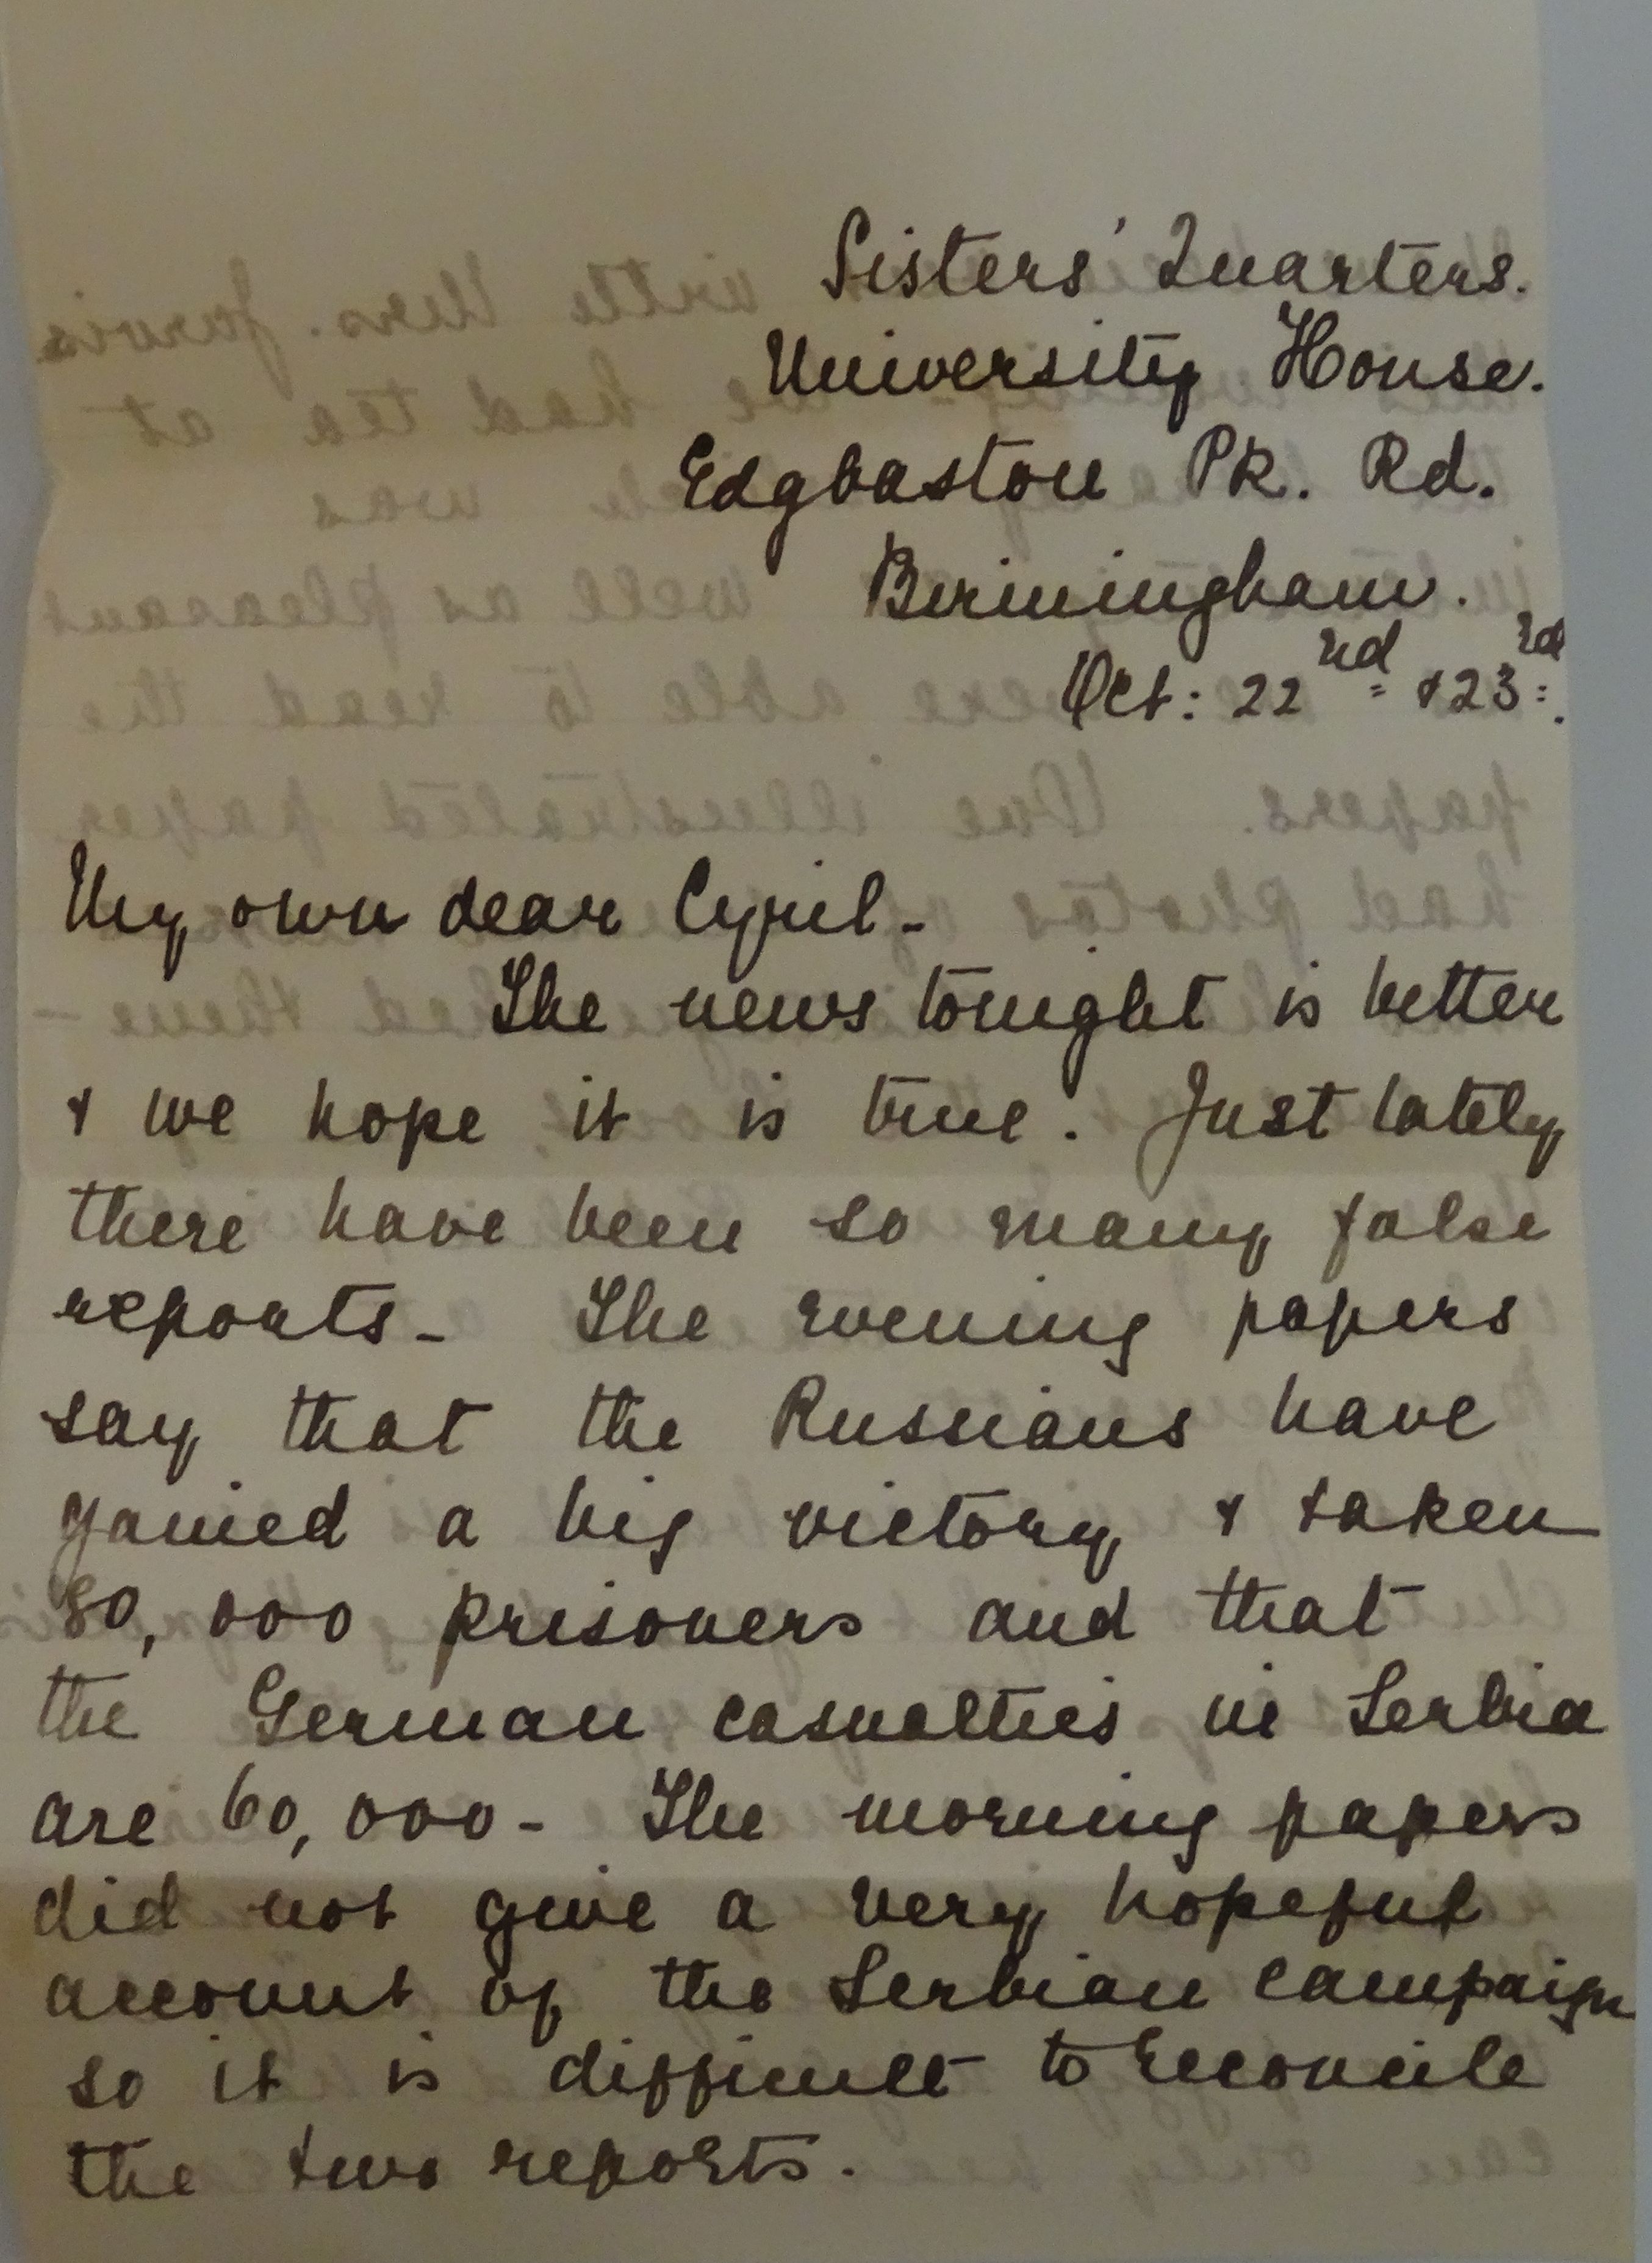 Sisters' Quarters.
University House.
Edgbaston Pk. Rd.
Birmingham.
Oct: 22nd & 23rd.
My own dear Cyril -
The news tonight is better
& we hope it is true. Just lately
there have been so many false
reports - The evening papers
say that the Russians have
gained a big victory & taken
80,000 prisoners and that
the German casualties in Serbia
are 60,000 - The morning papers
did not give a very hopeful
account of the Serbian campaign
so it is difficult to reconcile
the two reports.